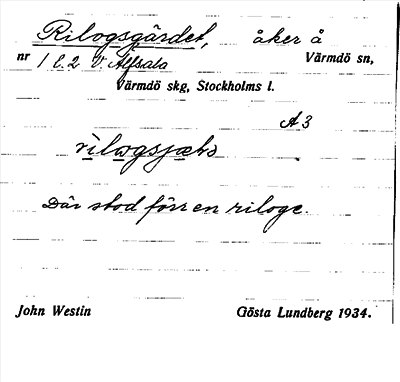 Rilogsgärdet, åker å
nr 1 l. 2 V. Alfsala Värmdö sn,
Värmdö skg, Stockholms l.
A3
rilogsjæts
Där stod förr en riloge.
John Westin Gösta Lundberg 1934.